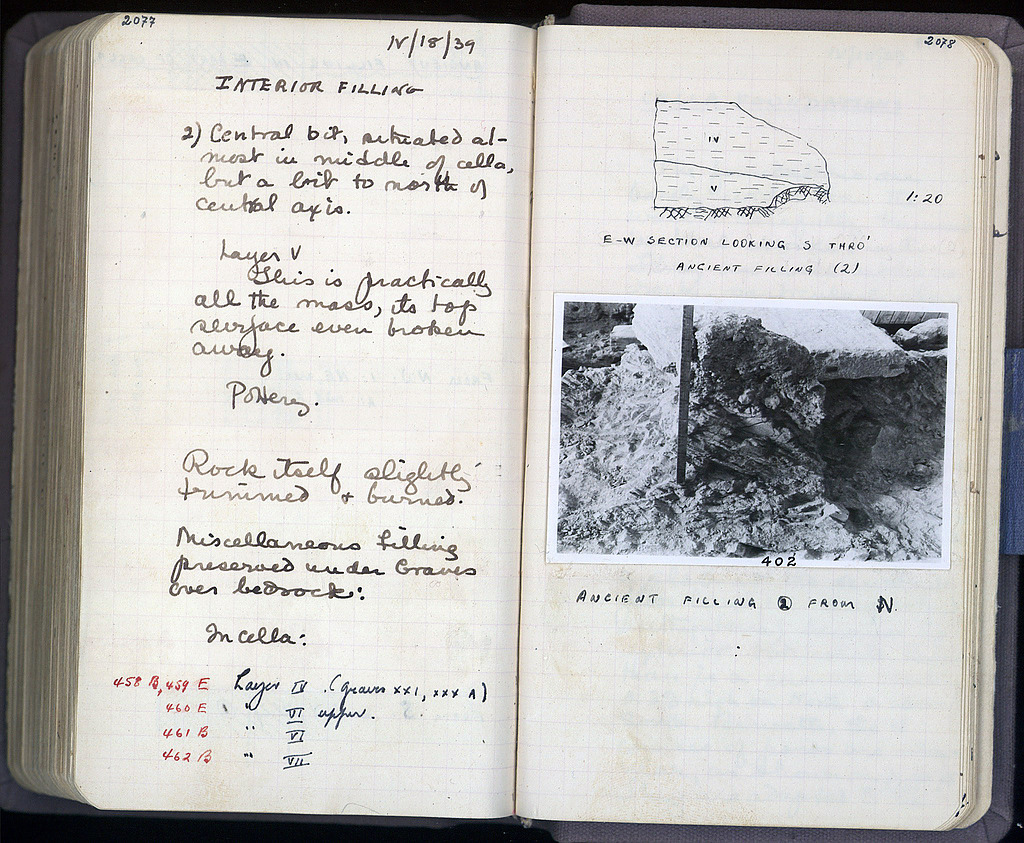 2077
IV/18/39
INTERIOR FILLING
2) Central bit, situated al-
most in middle of cella,
but a bit to north of
central axis.
Layer V
This is practically
all the mass, its top
surface even broken
away.
Pottery.
Rock itself slightly
trimmed + burned.
Miscellaneous filling
preserved under Graves
over bedrock:
In cella:
458 B, 459 E Layer IV (graves XXI, XXX A)
460 E " VI upper.
461 B " VI
462 B " VII
2078
IV
V
1:20
E-W SECTION LOOKING S THRO'
ANCIENT FILLING (2)
402
ANCIENT FILLING 2 FROM N.